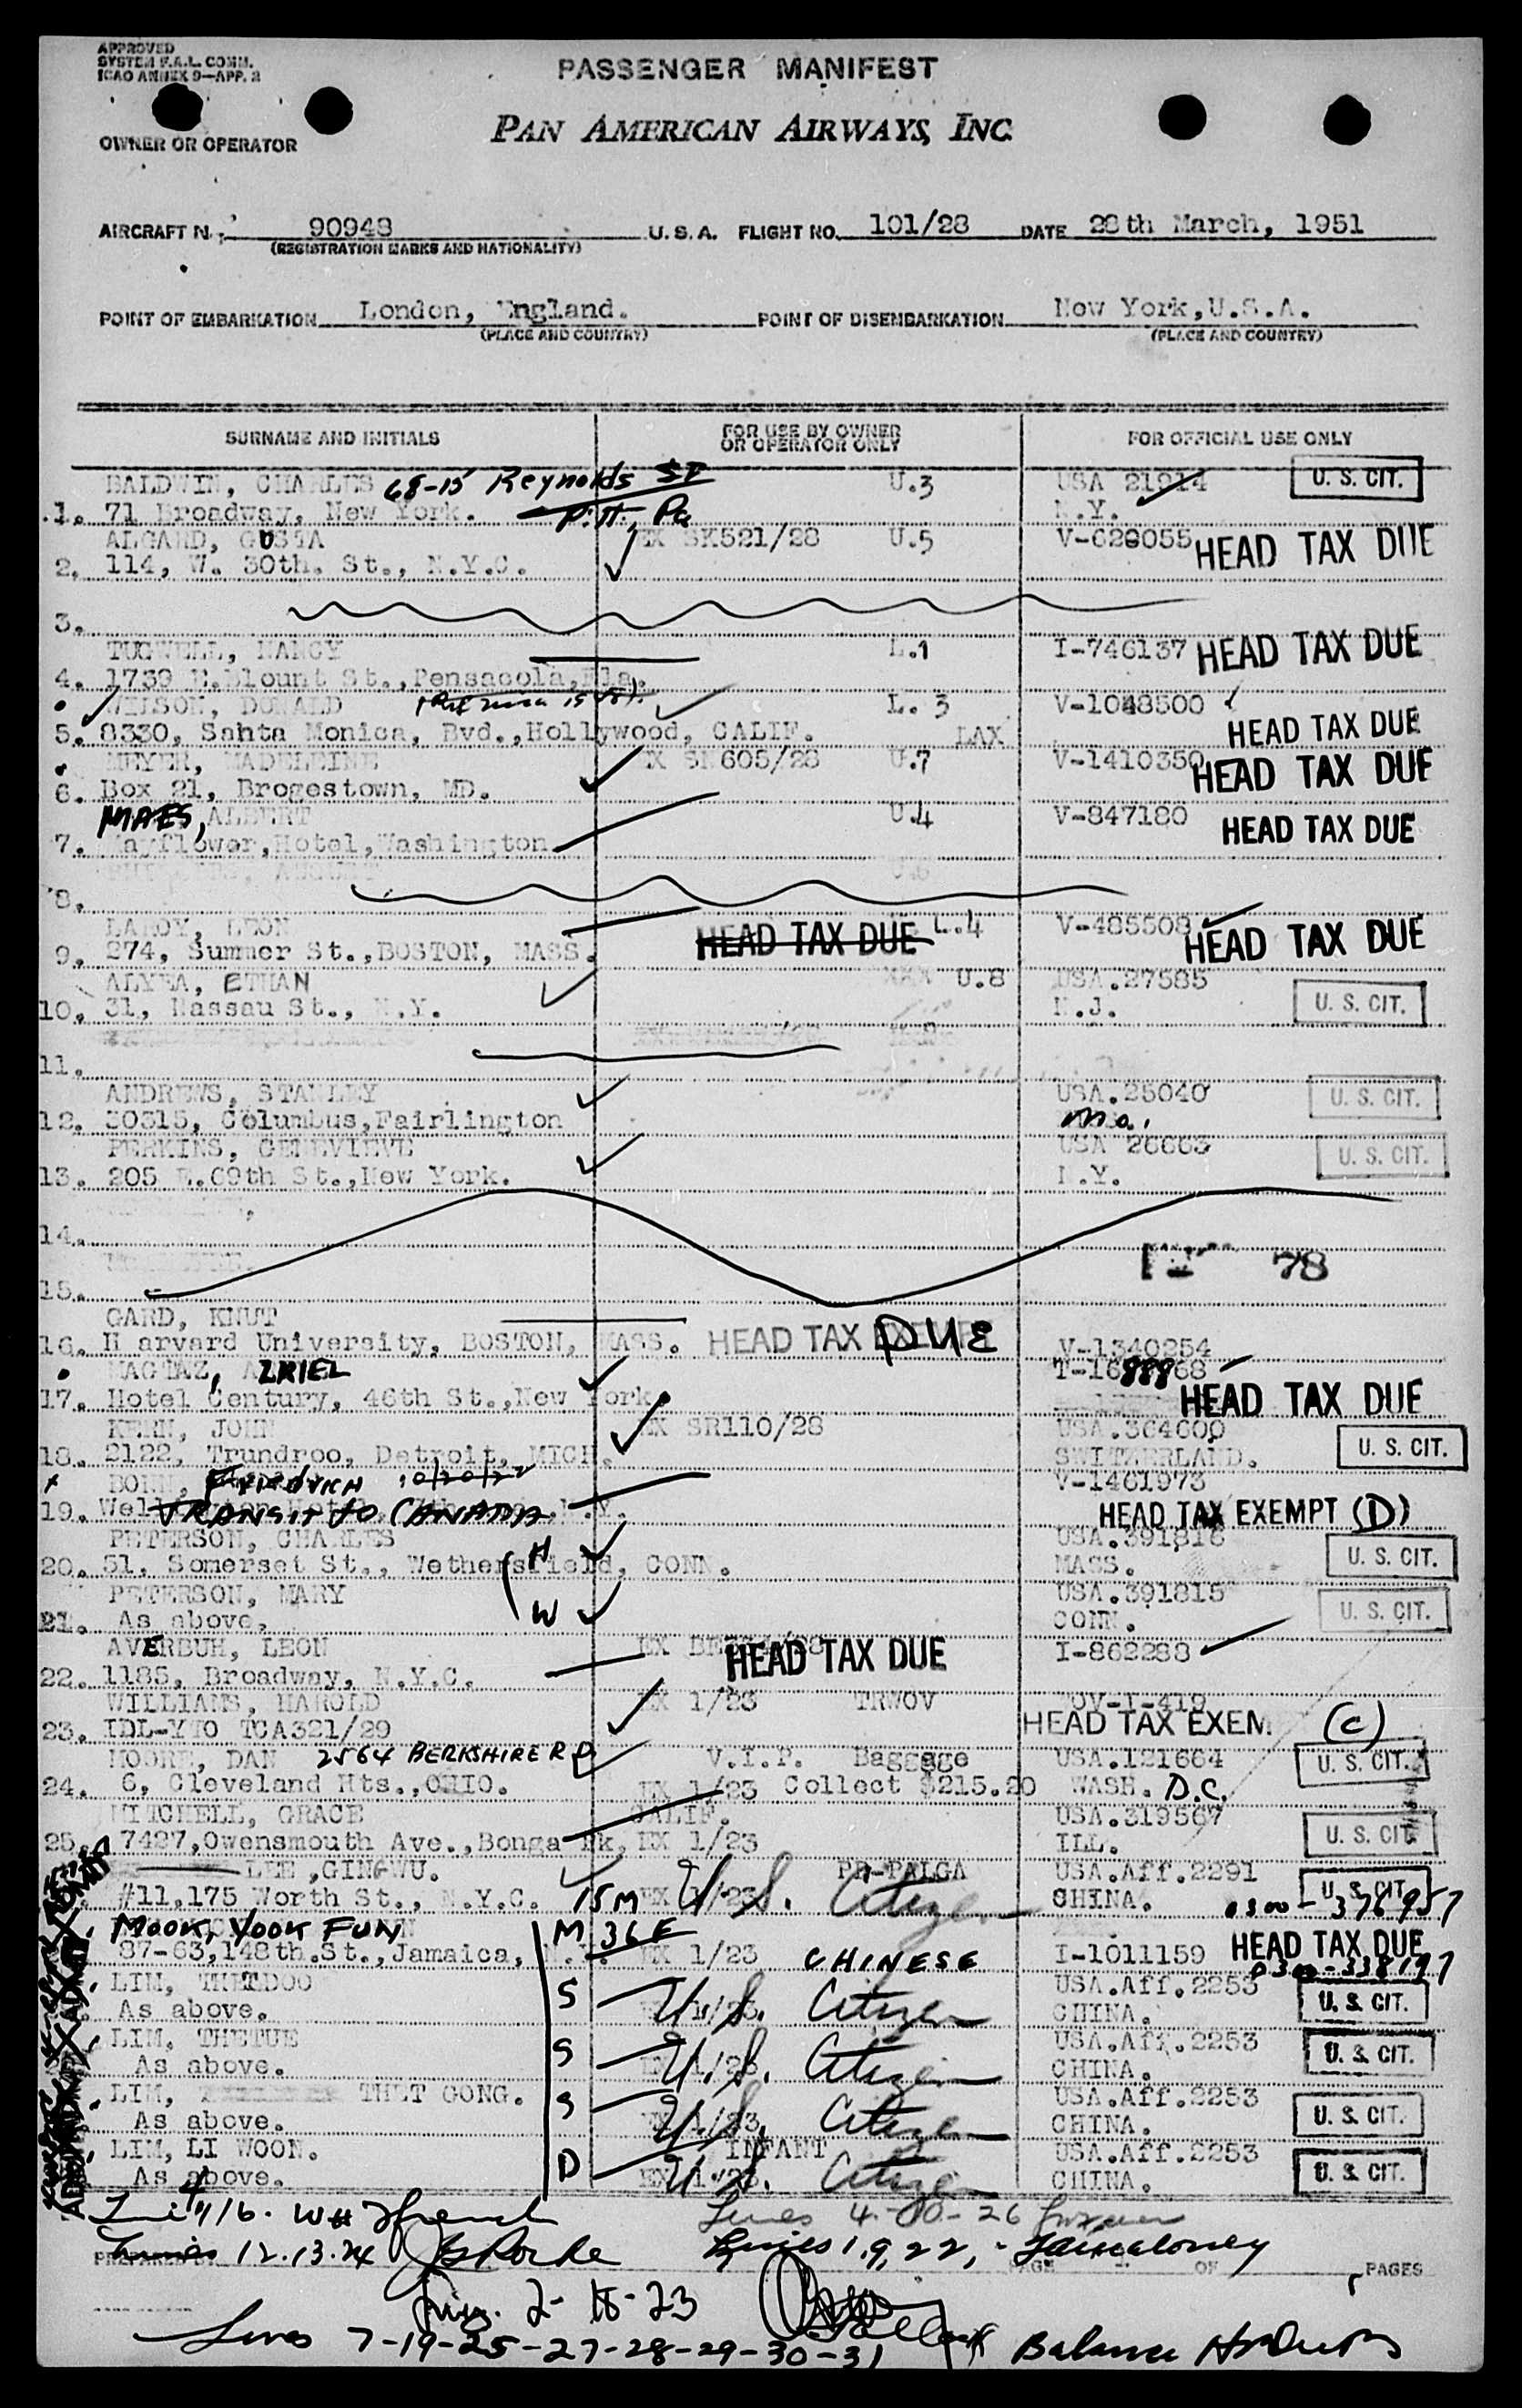 APPROVED
SYSTEM F.A.L. COMM.
ICAO ANNEX 9—APP. 2
PASSENGER MANIFEST
PAN AMERICAN AIRWAYS, INC
OWNER OR OPERATOR
AIRCRAFT N. 90948 U.S.A. FLIGHT NO. 101/28 DATE 28th March, 1951
(REGISTRATION MARKS AND NATIONALITY)
POINT OF EMBARKATION London, England. POINT OF DISEMBARKATION New York, U.S.A.
(PLACE AND COUNTRY) (PLACE AND COUNTRY)
SURNAME AND INITIALS FOR USE BY OWNER OR OPERATOR ONLY FOR OFFICIAL USE ONLY
BALDWIN, CHARLES 68-15 Reynolds St U.3 USA 21914 U. S. CIT.
1. 71 Broadway, New York. Pa N.Y.
ALGARD, GUSTA EX SK521/28 U.5 V-628055 HEAD TAX DUE
2. 114, W. 30th. St., N.Y.C.
3.
TUGWELL, NANCY L.1 I-746137 HEAD TAX DUE
4. 1739 E. Blount St., Pensacola, Fla.
WILSON, DONALD L. 3 V-1048500
5. 8330, Sahta Monica, Bvd., Hollywood, CALIF. LAX HEAD TAX DUE
MEYER, MADELEINE EX SN605/28 U.7 V-1410350 HEAD TAX DUE
6. Box 21, Brogestown, MD.
MAES, ALBERT U.4 V-847180 HEAD TAX DUE
7. Mayflower, Hotel, Washington
8.
LAROY, LEON HEAD TAX DUE L.4 V-485508 HEAD TAX DUE
9. 274, Summer St., BOSTON, MASS.
ALYEA, ETHAN U.8 USA.27585
10. 31, Nassau St., N.Y. N.J. U. S. CIT.
11.
ANDREWS, STANLEY USA.25040 U. S. CIT.
12. 30315, Columbus, Fairlington Mo.
PERKINS, GENEVIEVE USA 26663 U. S. CIT.
13. 205 E. 69th St., New York. N.Y.
14.
78
15.
GARD, KNUT
16. H arvard University, BOSTON, MASS. HEAD TAX DUE V-1340254
MAGDAZ, AZRIEL T-1688868
17. Hotel Century, 46th St., New York. HEAD TAX DUE
KERN, JOHN EX SR110/28 USA.364600
18. 2122, Trundroo, Detroit, MICH. SWITZERLAND. U. S. CIT.
BOHN, FRIEDRICH 10/20/22 V-1461973
19. TRANSIT TO CANADA HEAD TAX EXEMPT (D)
PETERSON, CHARLES H USA.391816
20. 51, Somerset St., Wethersfield, CONN. MASS. U. S. CIT.
PETERSON, MARY USA.391815
21. As above. W CONN. U. S. CIT.
AVERBUH, LEON HEAD TAX DUE I-862288
22. 1185, Broadway, N.Y.C.
WILLIAMS, HAROLD EX 1/23 TRWOV
23. IDL-YTO TCA321/29 HEAD TAX EXEM. (C)
MOORE, DAN 2564 BERKSHIRE RD V.I.P. Baggage USA.121664
24. 6, Cleveland Hts., OHIO. EX 1/23 Collect $215.20 WASH. D.C. U. S. CIT.
MITCHELL, GRACE CALIF. USA.319567
25. 7427, Owensmouth Ave., Bonga Pk, EX 1/23 ILL. U. S. CIT.
LEE, GINGWU. USA.Aff.2291
#11, 175 Worth St., N.Y.C. 15 M EX 1/23 U.S. Citizen CHINA. U. S. CIT. 0300-376957
MOOK, YOOK FUN M 36 F HEAD TAX DUE
87-63, 148th. St., Jamaica, N.Y. EX 1/23 CHINESE I-1011159 0300-338197
LIM, THETDOO S USA.Aff.2253
As above. U.S. Citizen CHINA. U. S. CIT.
LIM, THETUE S USA.Aff.2253
As above. U.S. Citizen CHINA. U. S. CIT.
LIM, THET GONG. S USA.Aff.2253
As above. U.S. Citizen CHINA. U. S. CIT.
LIM, LI WOON. D INFANT USA.Aff.2253
As above. U.S. Citizen CHINA. U. S. CIT.
Lines 4-10-26
12.13.24 Lines 1, 9, 22,
PAGE OF PAGES
2-18-23
Lines 7-19-25-27-28-29-30-31 Balance